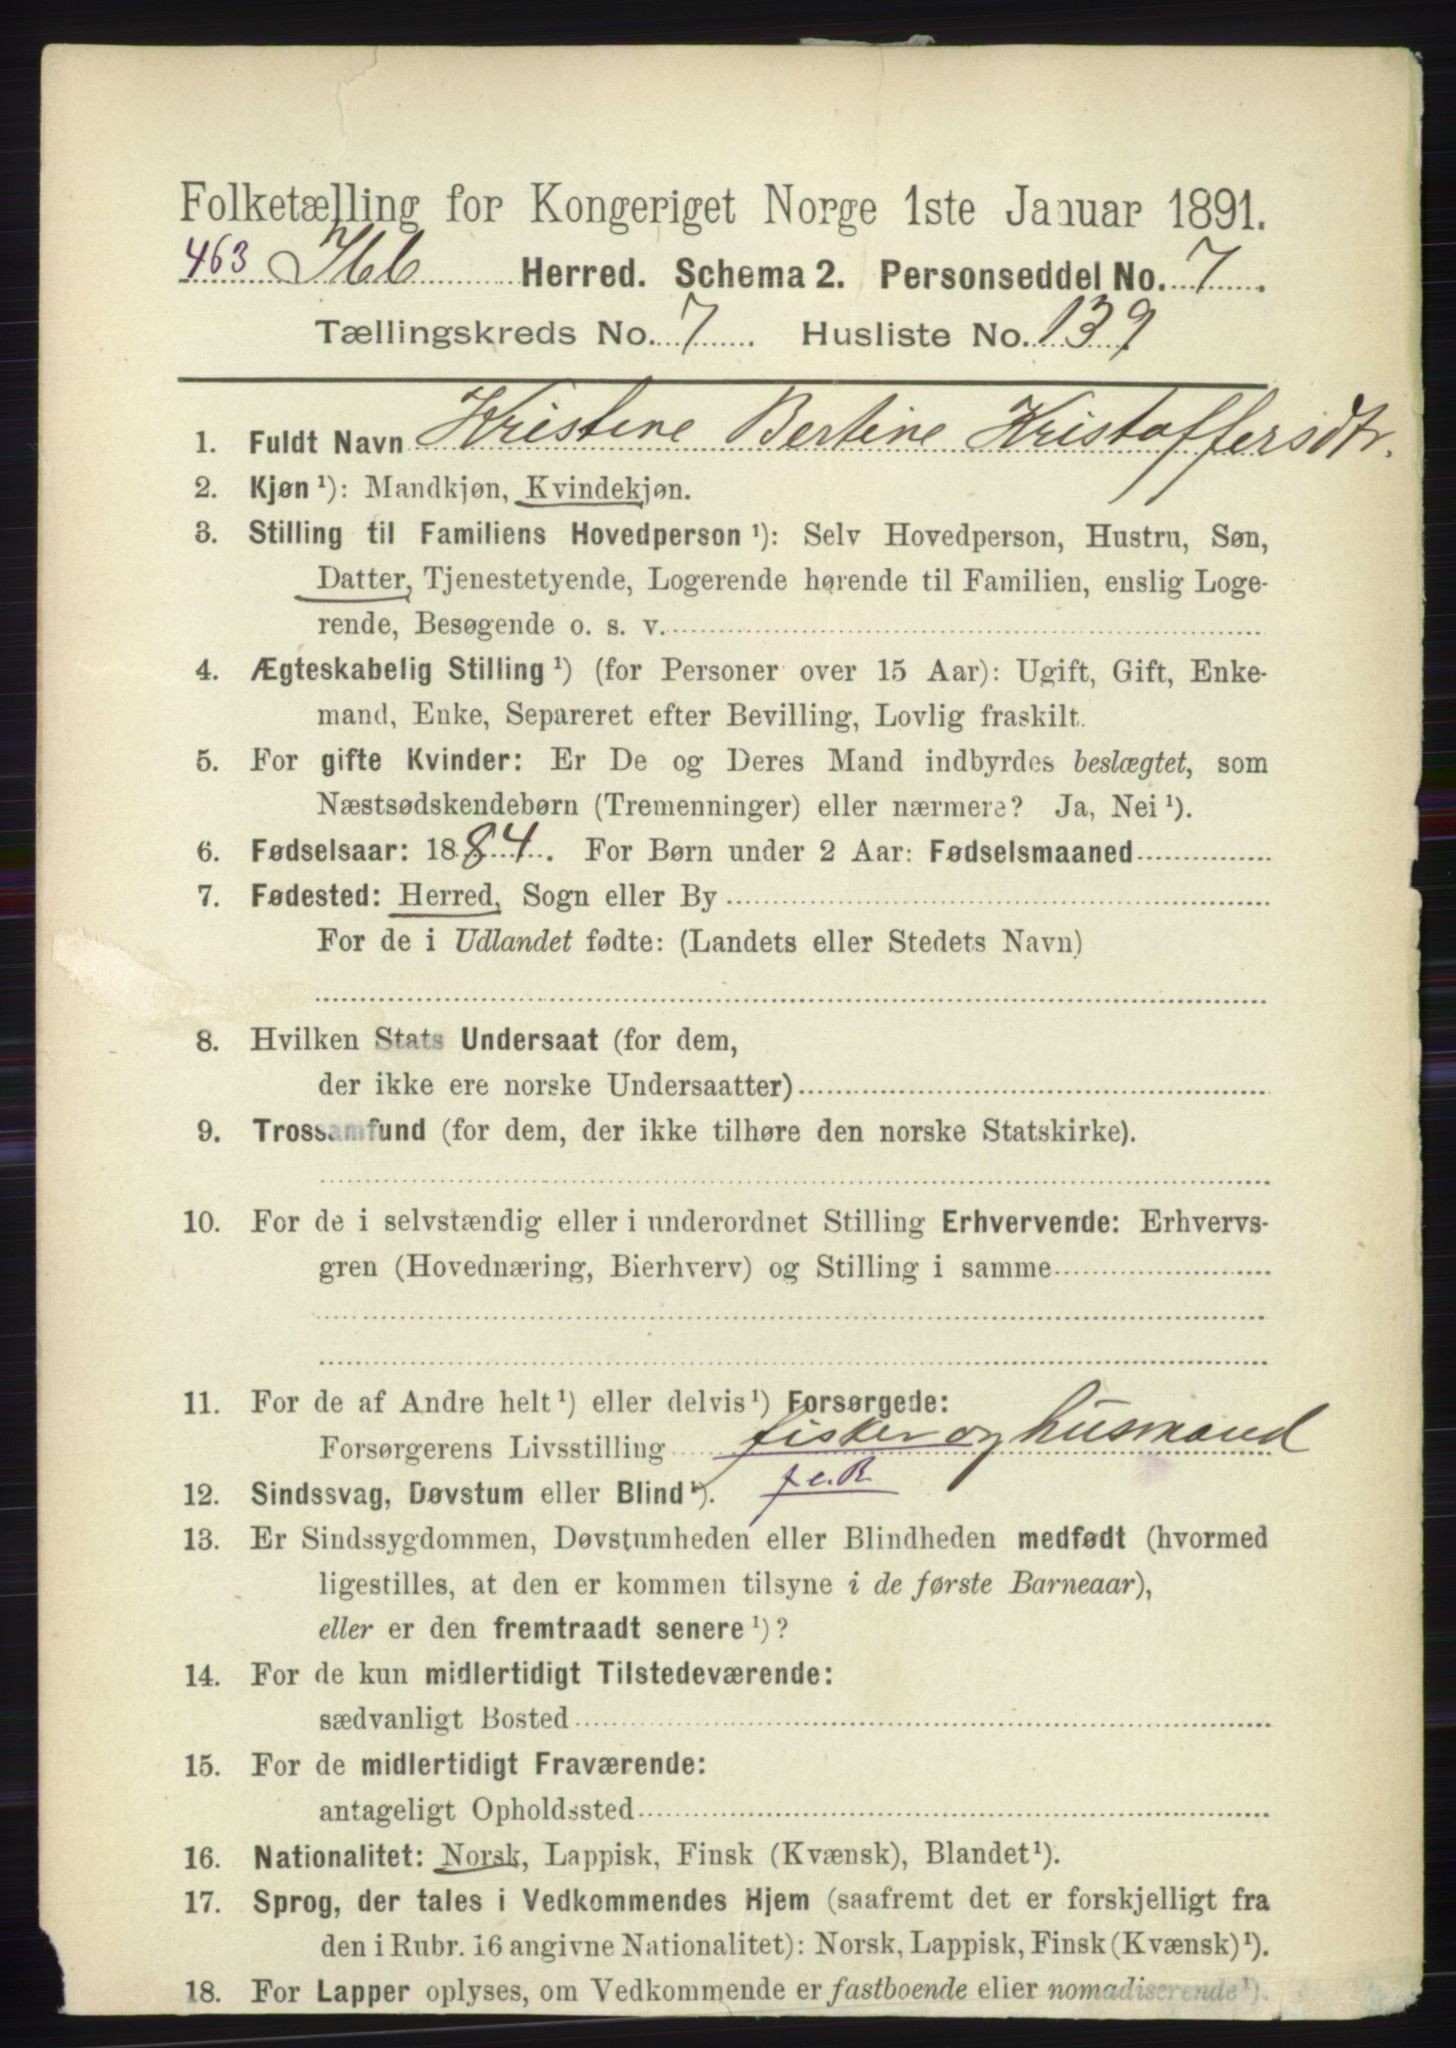 Folketælling for Kongeriget Norge 1ste Januar 1891.
463 Herred. Schema 2. Personseddel No. 7.
Tællingskreds No. 7. Husliste No. 139
1. Fuldt Navn Kristine Bertine Kristoffersdtr.
2. Kjøn ¹): Mandkjøn, Kvindekjøn.
3. Stilling til Familiens Hovedperson ¹): Selv Hovedperson, Hustru, Søn,
Datter, Tjenestetyende, Logerende hørende til Familien, enslig Loge-
rende, Besøgende o. s. v.
4. Ægteskabelig Stilling ¹) (for Personer over 15 Aar): Ugift, Gift, Enke-
mand, Enke, Separeret efter Bevilling, Lovlig fraskilt.
5. For gifte Kvinder: Er De og Deres Mand indbyrdes beslægtet, som
Næstsødskendebørn (Tremenninger) eller nærmere? Ja, Nei ¹).
6. Fødselsaar: 1884. For Børn under 2 Aar: Fødselsmaaned
7. Fødested: Herred, Sogn eller By
For de i Udlandet fødte: (Landets eller Stedets Navn)
8. Hvilken Stats Undersaat (for dem,
der ikke ere norske Undersaatter)
9. Trossamfund (for dem, der ikke tilhøre den norske Statskirke).
10. For de i selvstændig eller i underordnet Stilling Erhvervende: Erhvervs-
gren (Hovednæring, Bierhverv) og Stilling i samme
11. For de af Andre helt ¹) eller delvis ¹) Forsørgede:
Forsørgerens Livsstilling fisker og husmand
12. Sindssvag, Døvstum eller Blind ¹).
13. Er Sindssygdommen, Døvstumheden eller Blindheden medfødt (hvormed
ligestilles, at den er kommen tilsyne i de første Barneaar),
eller er den fremtraadt senere ¹)?
14. For de kun midlertidigt Tilstedeværende:
sædvanligt Bosted
15. For de midlertidigt Fraværende:
antageligt Opholdssted
16. Nationalitet: Norsk, Lappisk, Finsk (Kvænsk), Blandet ¹).
17. Sprog, der tales i Vedkommendes Hjem (saafremt det er forskjelligt fra
den i Rubr. 16 angivne Nationalitet): Norsk, Lappisk, Finsk (Kvænsk) ¹).
18. For Lapper oplyses, om Vedkommende er fastboende eller nomadiserende ¹).